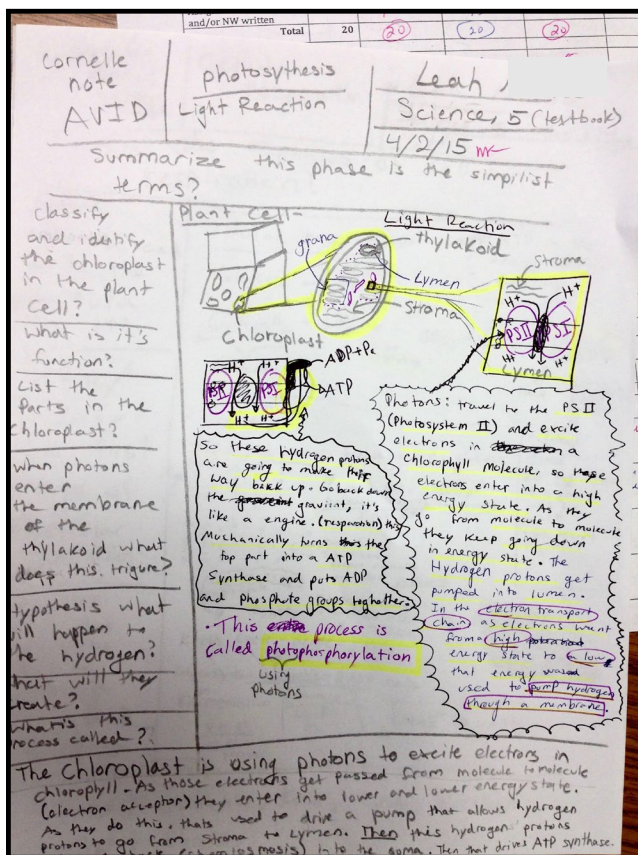 and/or NW written
Total 20 20 20 20
Cornelle
note
AVID
photosythesis
Light Reaction
Leah
Science, 5 (textbook)
4/2/15
Summarize this phase is the simplist
terms?
classify
and identify
the chloroplast
in the plant
cell?
what is it's
function?
List the
Parts in the
Chloroplast?
when photons
enter
the membrane
of the
thylakoid what
does this trigure?
Hypothesis what
will happen to
the hydrogen?
what will they
create?
what is this
process called?
Plant Cell-
Light Reaction
grana
thylakoid
Lymen
Stroma
Chloroplast
Stroma
H+ H+
PSII PSI
H+ H+
Lymen
H+ H+
PSII PSI
H+ H+
ADP+Pi
ATP
So these hydrogen protons
are going to make their
way back up. Go back down
the gravient, it's
like a engine. (resparation) this
Mechanically turns the
top part into a ATP
Synthase and puts ADP
and phosphate groups toghother.
• This process is
called photophosphorylation
using
photons
Photons: travel to the PS II
(Photosystem II) and excite
electrons in a
Chlorophyll molecule, so these
electrons enter into a high
energy state. As they
go from molecule to molecule
they keep going down
in energy state. The
Hydrogen protons get
pumped into lumen.
In the electron transport
chain as electrons went
from a high
energy state to a low
that energy was
used to pump hydrogen
through a membrane.
The Chloroplast is using photons to excite electrons in
chlorophyll. As those electrons get passed from molecule to molecule
(electron acceptor) they enter into lower and lower energy state.
As they do this, thats used to drive a pump that allows hydrogen
protons to go from Stroma to Lymen. Then this hydrogen protons
into the Then that drives ATP synthase.